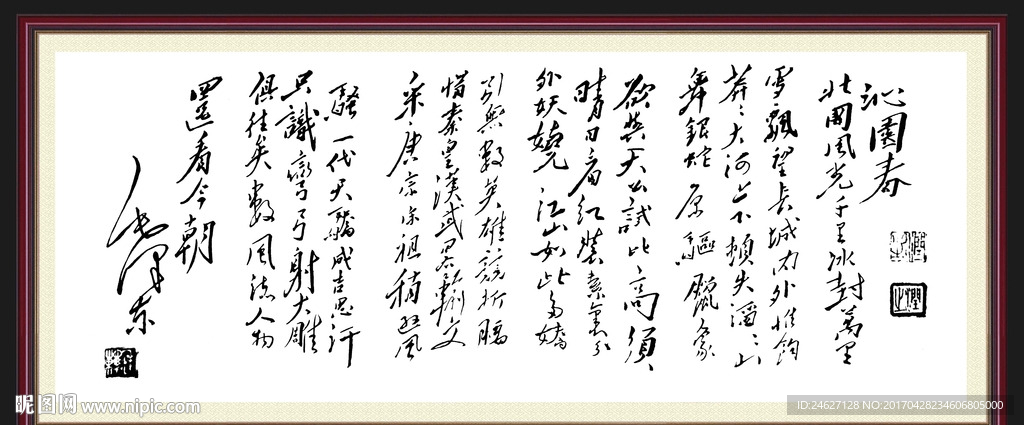 沁園春
北國風光千里冰封萬里
雪飄望長城內外惟餘
莽々大河上下頓失滔々山
舞銀蛇原驅臘象
欲與天公試比高須
晴日看紅裝素裹分
外妖嬈江山如此多嬌
引無數英雄競折腰
惜秦皇漢武略輸文
采唐宗宋祖稍遜風
騷一代天驕成吉思汗
只識彎弓射大雕
俱往矣數風流人物
還看今朝
毛澤東
昵图网 www.nipic.com
ID:24627128 NO:20170428234606805000